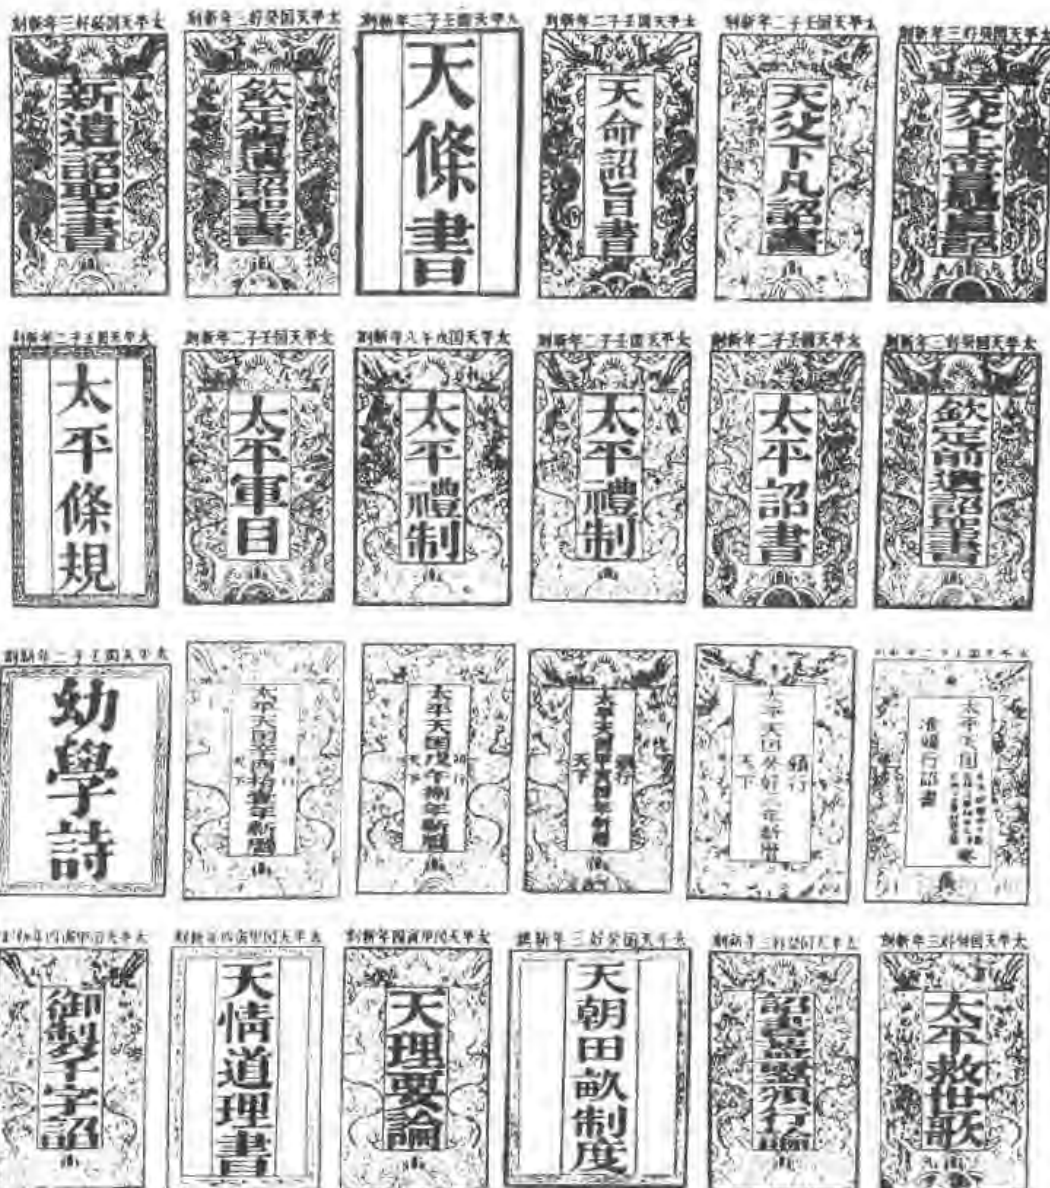 太平天囯癸好三年新刻
新遺詔聖書
太平天囯癸好三年新刻
欽定舊遺詔聖書
太平天囯壬子二年新刻
天條書
太平天囯壬子二年新刻
天命詔旨書
太平天囯壬子二年新刻
天父下凡詔書
太平天囯癸好三年新刻
天父上帝言題皇詔
太平天囯壬子二年新刻
太平條規
太平天囯壬子二年新刻
太平軍目
太平天囯戊午八年新刻
太平禮制
太平天囯壬子二年新刻
太平禮制
太平天囯壬子二年新刻
太平詔書
太平天囯癸好三年新刻
欽定前遺詔聖書
太平天囯壬子二年新刻
幼學詩
頒行
太平天囯辛酉拾壹年新曆
天下
頒行
太平天囯戊午捌年新曆
天下
頒行
太平天囯甲寅四年新曆
天下
頒行
太平天囯癸好三年新曆
天下
太平天囯
准頒行詔書
太平天囯甲寅四年新刻
御製千字詔
太平天囯甲寅四年新刻
天情道理書
太平天囯甲寅四年新刻
天理要論
太平天囯癸好三年新鐫
天朝田畝制度
太平天囯癸好三年新刻
詔書蓋璽頒行論
太平天囯癸好三年新刻
太平救世歌